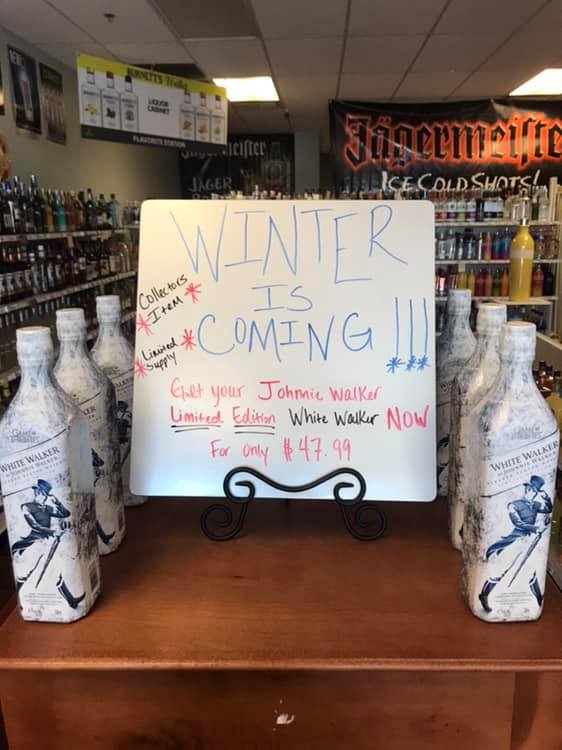 BURNETT'S Vodka
LIQUOR
CABINET
FLAVORITE STATION
Jägermeister
JÄGER
Jägermeiste
ICE COLD SHOTS!
WINTER
IS
COMING!!!
Collectors
Item
Limited
Supply
Get your Johnnie Walker
Limited Edition White Walker NOW
For only $47.99
GAME OF THRONES
WHITE WALKER
BY JOHNNIE WALKER
WHITE WALKER
BY JOHNNIE WALKER